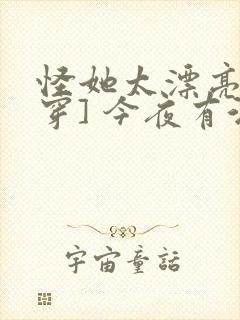 怪她太漂亮
穿]今夜有
宇宙童話